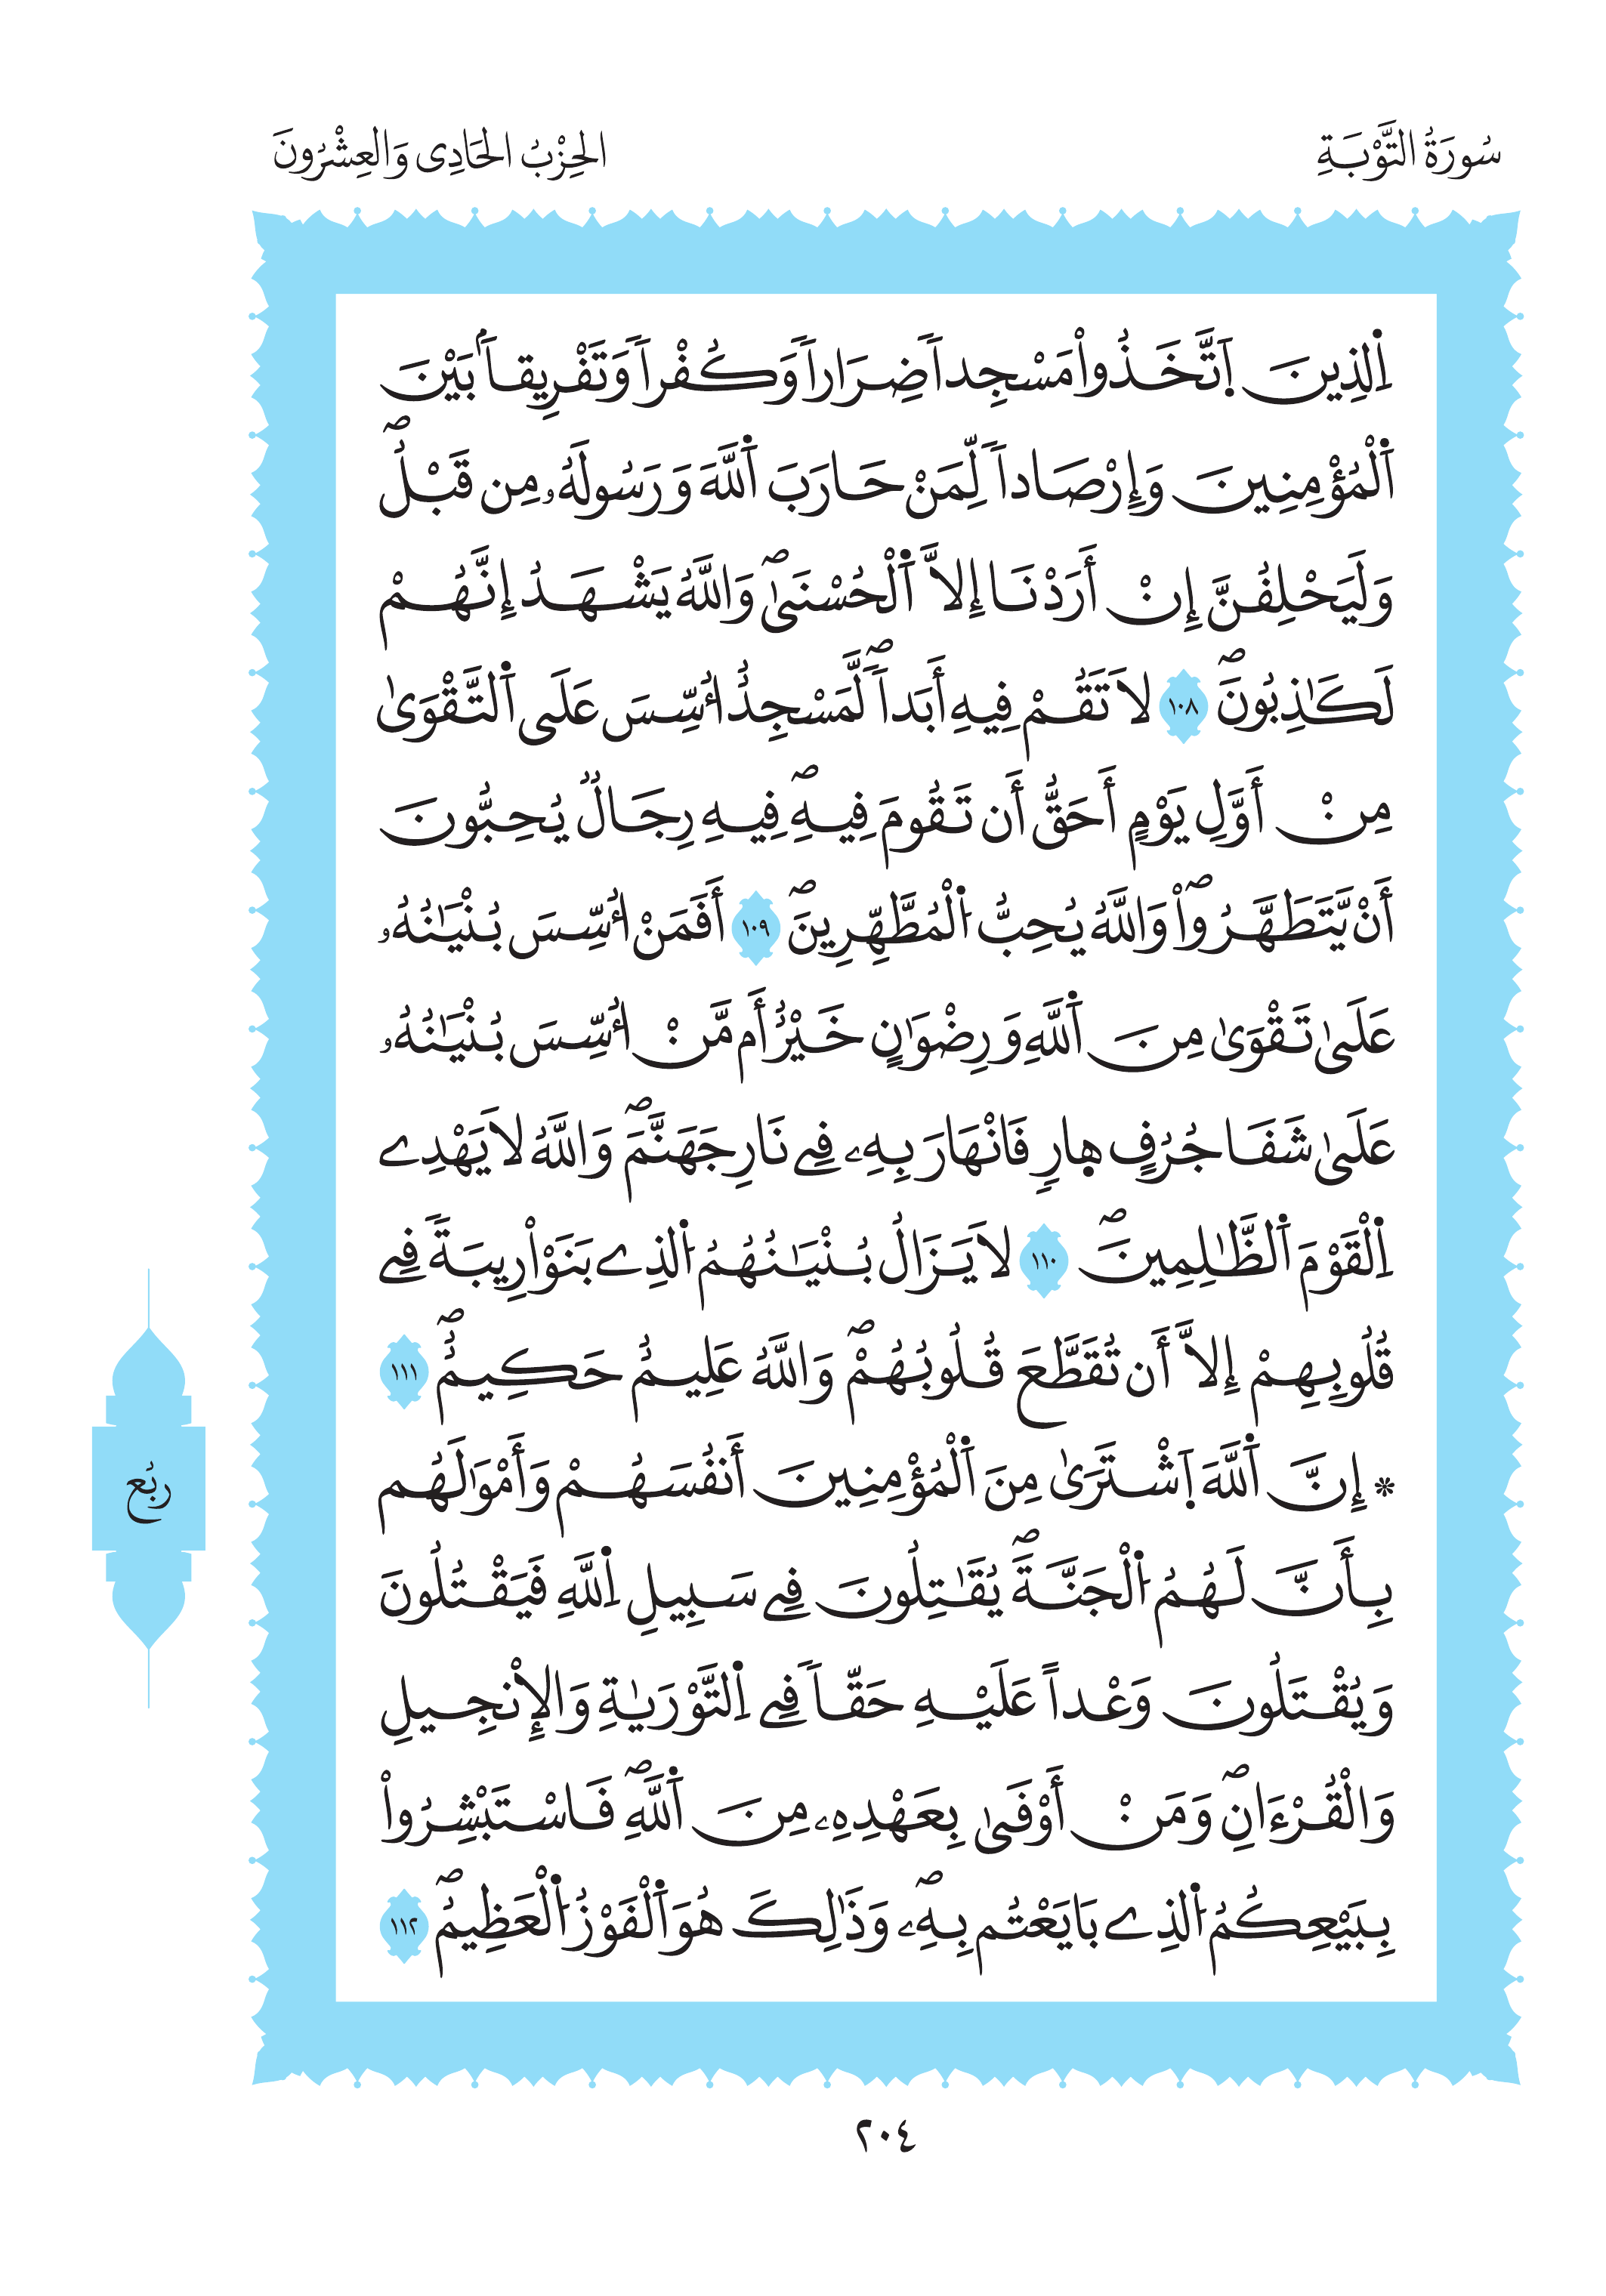 سُورَةُ التَّوْبَةِ
الحِزْبُ الحَادِى وَالعِشْرُونَ
اَ۬لذِينَ اَ۪تَّخَذُواْ مَسْجِداٗ ضِرَاراٗ وَكُفْراٗ وَتَفْرِيقاَۢ بَيْنَ
اَ۬لْمُؤْمِنِينَ وَإِرْصَاداٗ لِّمَنْ حَارَبَ اَ۬للَّهَ وَرَسُولَهُۥ مِن قَبْلُۖ
وَلَيَحْلِفُنَّ إِنْ أَرَدْنَا إِلاَّ اَ۬لْحُسْنَىٰۖ وَاللَّهُ يَشْهَدُ إِنَّهُمْ
لَكَٰذِبُونَۖ ١٠٨ لاَ تَقُمْ فِيهِ أَبَداٗۖ لَّمَسْجِدٌ ا۟سِّسَ عَلَى اَ۬لتَّقْوَىٰ
مِنْ أَوَّلِ يَوْمٍ أَحَقُّ أَن تَقُومَ فِيهِۖ فِيهِ رِجَالٞ يُحِبُّونَ
أَنْ يَّتَطَهَّرُواْۖ وَاللَّهُ يُحِبُّ اُ۬لْمُطَّهِّرِينَۖ ١٠٩ أَفَمَنْ ا۟سِّسَ بُنْيَٰنُهُۥ
عَلَىٰ تَقْوَىٰ مِنَ اَ۬للَّهِ وَرِضْوَٰنٍ خَيْرٌ أَم مَّنْ ا۟سِّسَ بُنْيَٰنُهُۥ
عَلَىٰ شَفَا جُرُفٍ ه۪ارٖ فَانْهَارَ بِهِۦ فِے نَارِ جَهَنَّمَۖ وَاللَّهُ لاَ يَهْدِے
اِ۬لْقَوْمَ اَ۬لظَّٰلِمِينَۖ ١١٠ لاَ يَزَالُ بُنْيَٰنُهُمُ اُ۬لذِے بَنَوْاْ رِيبَةٗ فِے
قُلُوبِهِمْ إِلاَّ أَن تُقَطَّعَ قُلُوبُهُمْۖ وَاللَّهُ عَلِيمٌ حَكِيمٌۖ ١١١
* إِنَّ اَ۬للَّهَ اَ۪شْتَرَىٰ مِنَ اَ۬لْمُؤْمِنِينَ أَنفُسَهُمْ وَأَمْوَٰلَهُم
بِأَنَّ لَهُمُ اُ۬لْجَنَّةَۖ يُقَٰتِلُونَ فِے سَبِيلِ اِ۬للَّهِ فَيَقْتُلُونَ
وَيُقْتَلُونَ وَعْداً عَلَيْهِ حَقّاٗ فِے اِ۬لتَّوْرَيٰةِ وَالإِنْجِيلِ
وَالْقُرْءَانِۖ وَمَنْ أَوْفَىٰ بِعَهْدِهِۦ مِنَ اَ۬للَّهِۖ فَاسْتَبْشِرُواْ
بِبَيْعِكُمُ اُ۬لذِے بَايَعْتُم بِهِۦۖ وَذَٰلِكَ هُوَ اَ۬لْفَوْزُ اُ۬لْعَظِيمُۖ ١١٢
ربُع
٢٠٤